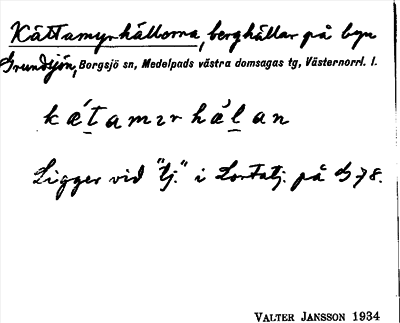 Kättamyrhällorna, berghällar på byn
Grundsjön, Borgsjö sn, Medelpads västra domsagas tg, Västernorrl. l.
kǽtamır hǽlan
Ligger vid "tj." i Lortatj. på G 78.
VALTER JANSSON 1934